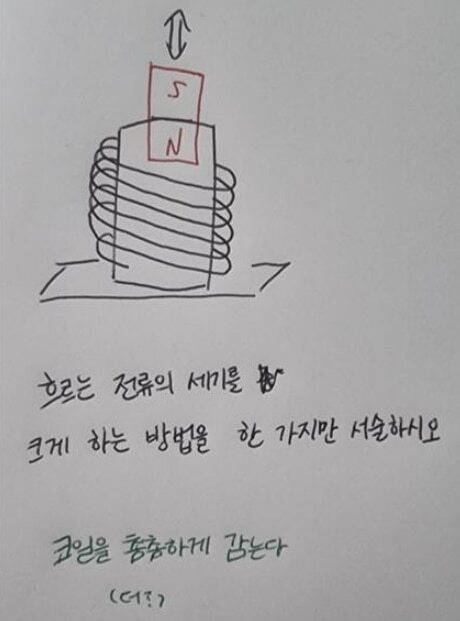 S
N
흐르는 전류의 세기를
크게 하는 방법을 한 가지만 서술하시오
코일을 촘촘하게 감는다
(더?)